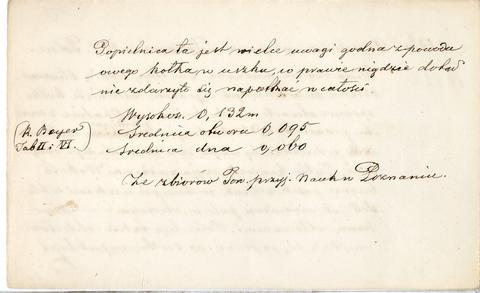 Popielnica ta jest wielce uwagi godna z powodu
owego kółka w uszku, co prawie nigdzie dotąd
nie zdarzyło się napotkać w całości.
Wysokość 0,132m
(K. Beyer
Średnica otworu 0,095
Tab II i VI.)
Średnica dna 0,060
Ze zbiorów Tow. przyj. Nauk w Poznaniu.